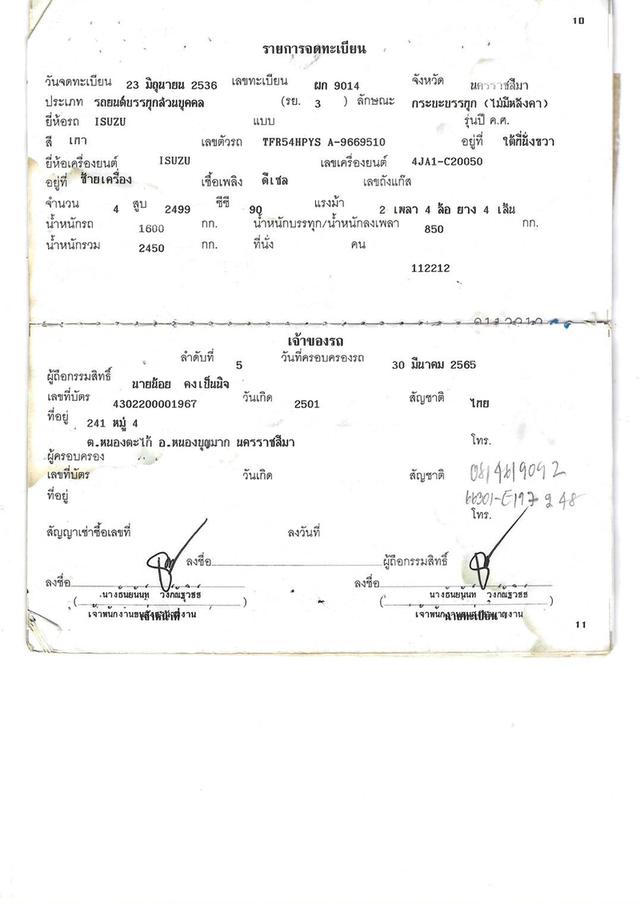 10
รายการจดทะเบียน
วันจดทะเบียน 23 มิถุนายน 2536 เลขทะเบียน ผก 9014 จังหวัด นครราชสีมา
ประเภท รถยนต์บรรทุกส่วนบุคคล (รย. 3 ) ลักษณะ กระบะบรรทุก (ไม่มีหลังคา)
ยี่ห้อรถ ISUZU แบบ รุ่นปี ค.ศ.
สี เทา เลขตัวรถ TFR54HPYS A-9669510 อยู่ที่ ใต้ที่นั่งขวา
ยี่ห้อเครื่องยนต์ ISUZU เลขเครื่องยนต์ 4JA1-C20050
อยู่ที่ ซ้ายเครื่อง เชื้อเพลิง ดีเซล เลขถังแก๊ส
จำนวน 4 สูบ 2499 ซีซี 90 แรงม้า 2 เพลา 4 ล้อ ยาง 4 เส้น
น้ำหนักรถ 1600 กก. น้ำหนักบรรทุก/น้ำหนักลงเพลา 850 กก.
น้ำหนักรวม 2450 กก. ที่นั่ง คน
112212
เจ้าของรถ
ลำดับที่ 5 วันที่ครอบครองรถ 30 มีนาคม 2565
ผู้ถือกรรมสิทธิ์ นายน้อย คงเป็นนิจ
เลขที่บัตร 4302200001967 วันเกิด 2501 สัญชาติ ไทย
ที่อยู่ 241 หมู่ 4
ต.หนองตะไก้ อ.หนองบุญมาก นครราชสีมา โทร.
ผู้ครอบครอง
เลขที่บัตร วันเกิด สัญชาติ
ที่อยู่
โทร.
สัญญาเช่าซื้อเลขที่ ลงวันที่
ลงชื่อ ผู้ถือกรรมสิทธิ์
ลงชื่อ ลงชื่อ
( ) ( )
เจ้าหน้าที่ นายทะเบียน
11